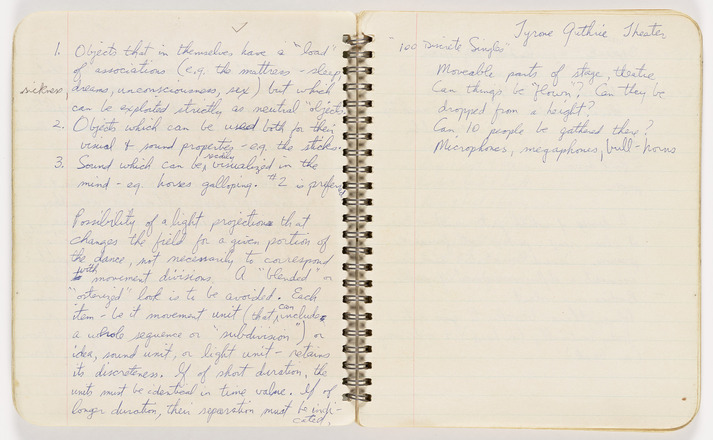 1. Objects that in themselves have a "load"
of associations (e.g. the mattress - sleep,
sickness, dreams, unconsciousness, sex) but which
can be exploited strictly as neutral "objects."
2. Objects which can be used both for their
visual & sound properties - e.g. the sticks.
3. Sound which can be readily visualized in the
mind - eg. horses galloping. #2 is preferred
Possibility of a light projections that
changes the field for a given portion of
the dance, not necessarily to correspond
with movement divisions. A "blended" or
"osterized" look is to be avoided. Each
item - be it movement unit (that can include
a whole sequence or "subdivision") or
idea, sound unit, or light unit - retains
its discreteness. If of short duration, the
units must be identical in time value. If of
longer duration, their separation must be indi-
cated.
Tyrone Guthrie Theater
"100 Discrete Singles"
Moveable parts of stage, theatre
Can things be "flown"? Can they be
dropped from a height?
Can 10 people be gathered there?
Microphones, megaphones, bull-horns